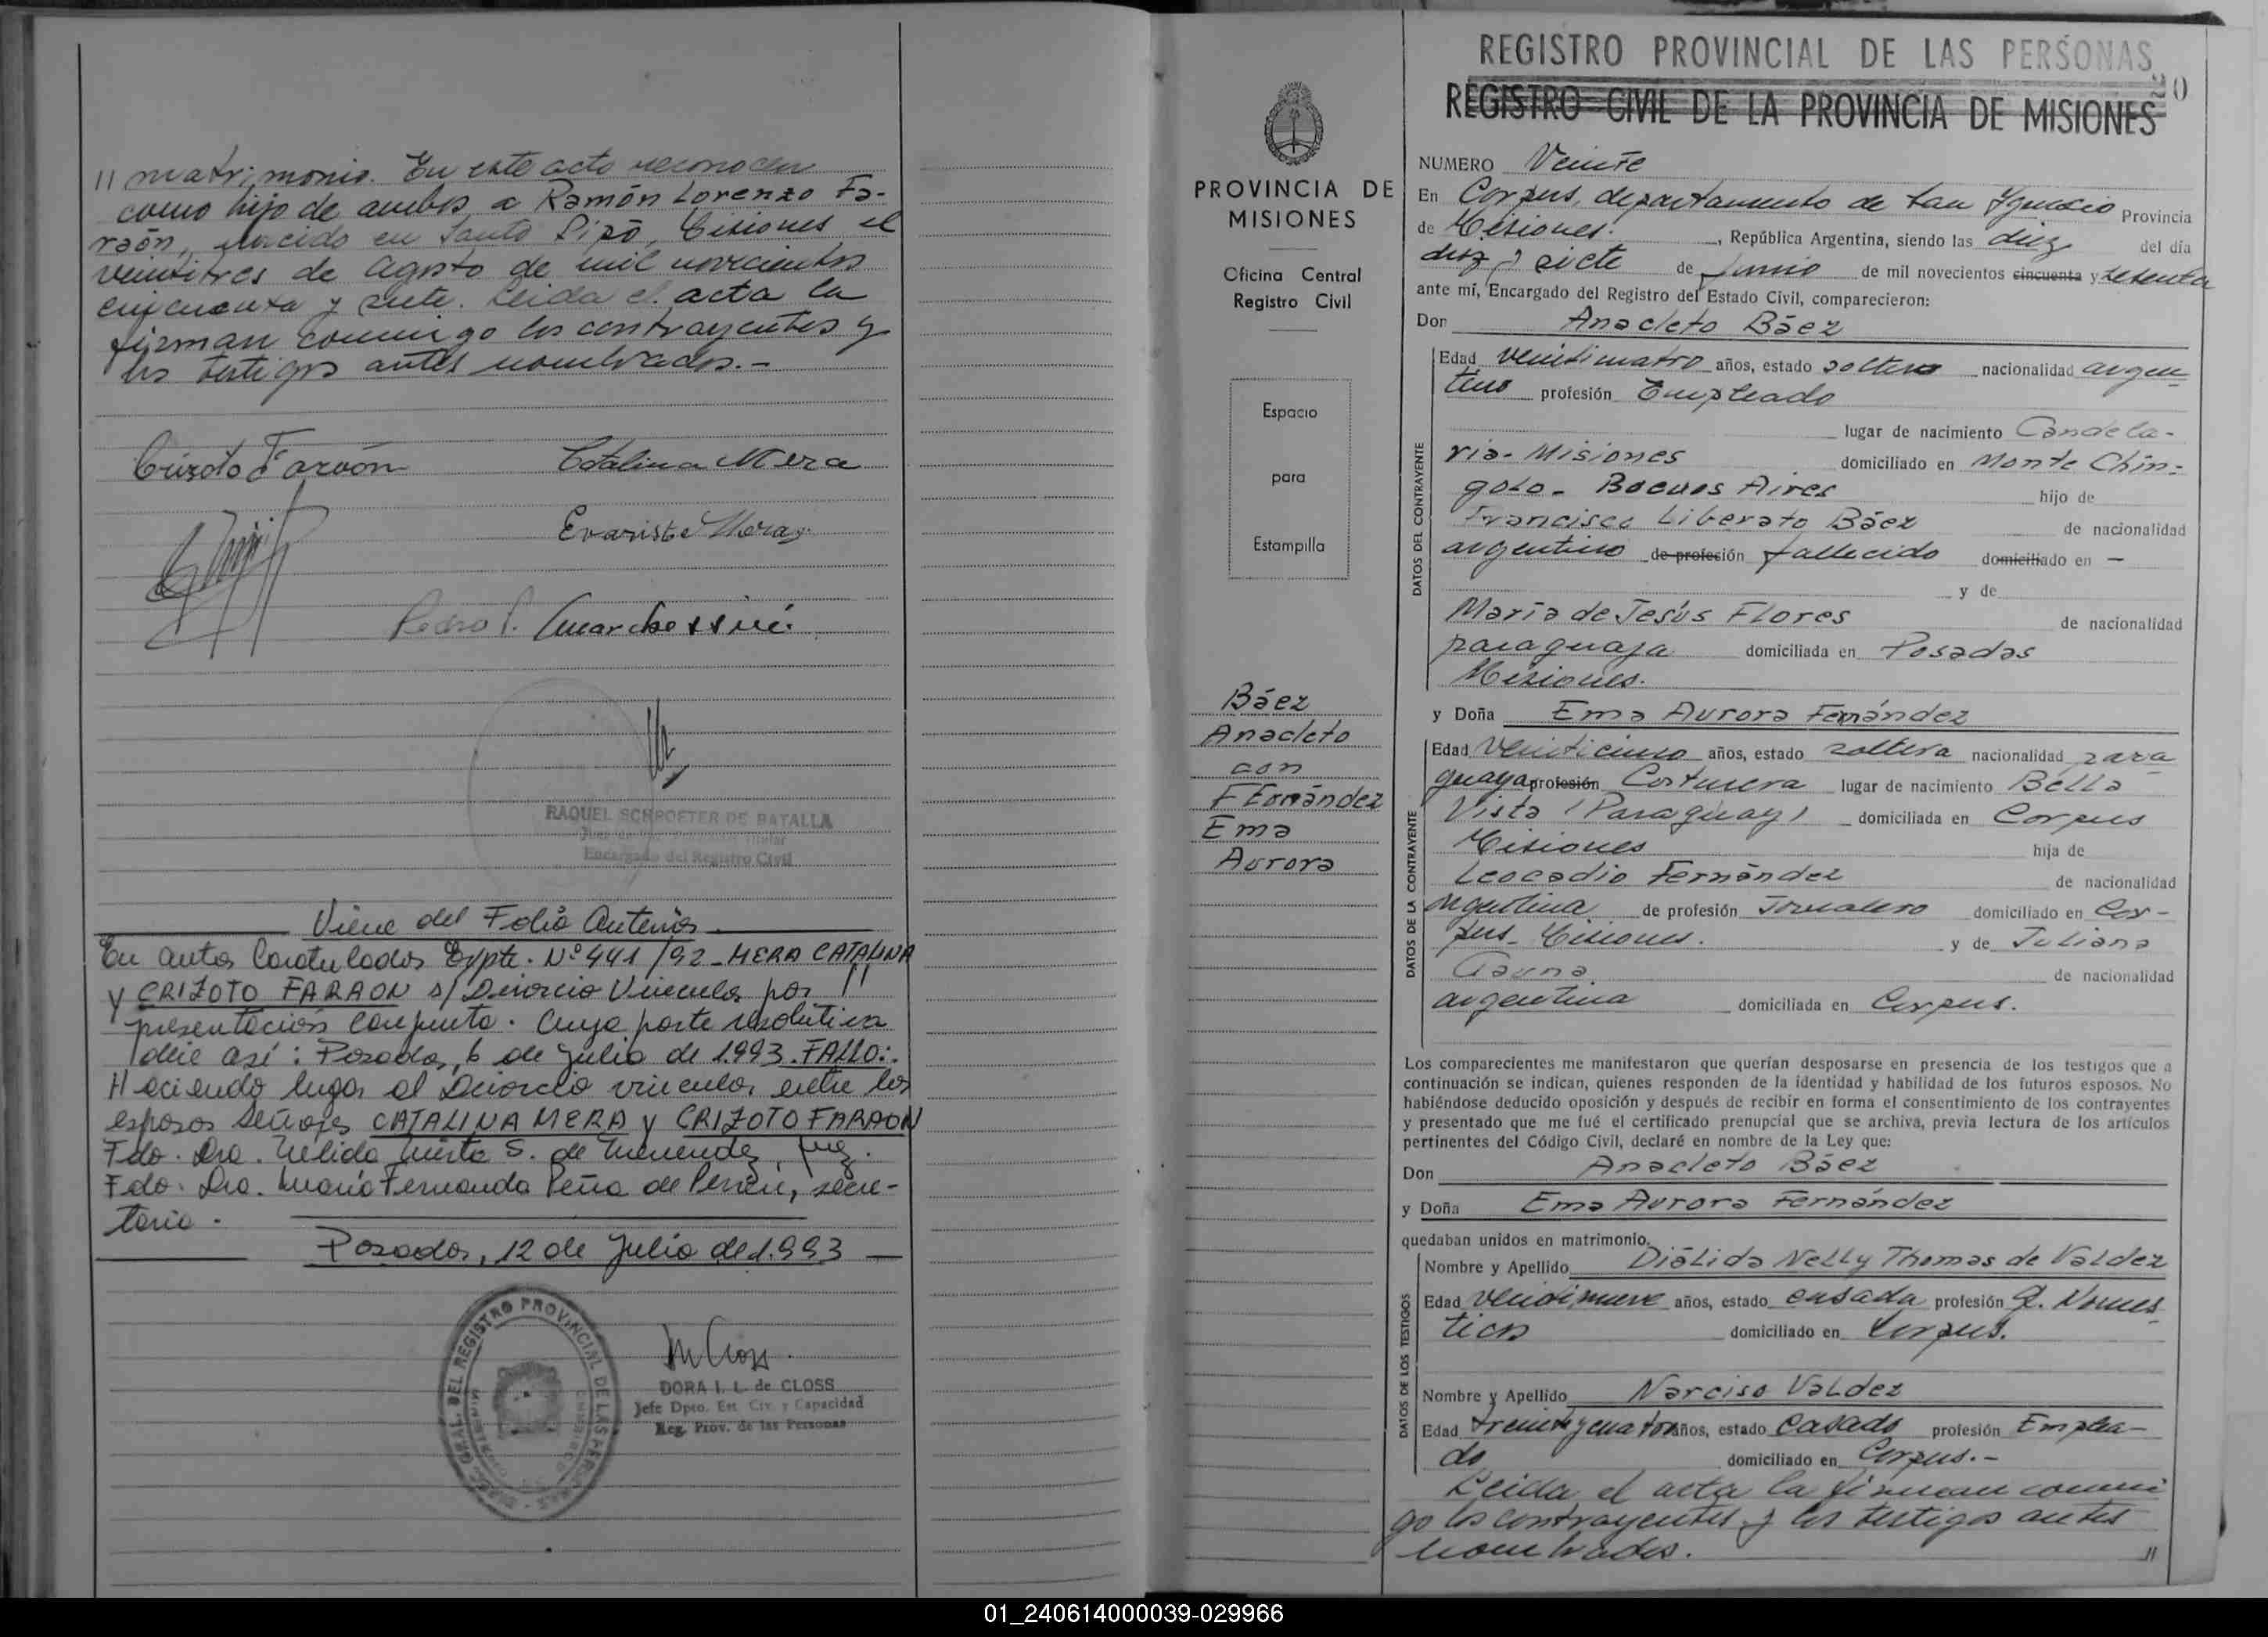 // matrimonio. En este acto reconocen
como hijo de ambos a Ramón Lorenzo Fa-
raón, nacido en Santo Pipó, Misiones el
veintitres de Agosto de mil novecientos
cincuenta y siete. Leida el acta la
firman conmigo los contrayentes y
los testigos antes nombrados.-
Crizoto Faraón
Catalina Mera
Evaristo Mora
Pedro
RAQUEL SCHROETER DE BATALLA
Titular
Encargado del Registro Civil
Viene del Folio Anterior
En autos Caratulados Expte. Nº 441/92 - MERA CATALINA
y CRIZOTO FARAON s/ Divorcio Vincular por //
presentación conjunta. Cuya parte resolutiva
dice así: Posadas, 6 de Julio de 1.993. FALLO:.
Haciendo lugar al Divorcio vincular entre los
esposos Señores CATALINA MERA y CRIZOTO FARAON
Fdo. Dra. S. de Menendez, Juez.
Fdo. Dra. María Fernanda Peña de, secre-
taria.
Posadas, 12 de Julio de 1.993
DIREC. GRAL. DEL REGISTRO PROVINCIAL DE LAS PERSONAS
DORA I. L. de CLOSS
Jefe Dpto. Est. Civ. y Capacidad
Reg. Prov. de las Personas
PROVINCIA DE
MISIONES
Oficina Central
Registro Civil
Espacio
para
Estampilla
Báez
Anacleto
con
Fernández
Ema
Aurora
REGISTRO PROVINCIAL DE LAS PERSONAS
20
REGISTRO CIVIL DE LA PROVINCIA DE MISIONES
NUMERO Veinte
En Corpus, departamento de San Ignacio Provincia
de Misiones. , República Argentina, siendo las diez del día
diez y siete de Junio de mil novecientos cincuenta y sesenta
ante mí, Encargado del Registro del Estado Civil, comparecieron:
Don Anacleto Báez
DATOS DEL CONTRAYENTE
Edad veinticuatro años, estado soltero nacionalidad argen
tino profesión Empleado
lugar de nacimiento Candela-
ria- Misiones domiciliado en Monte Chin-
golo- Buenos Aires hijo de
Francisco Liberato Báez de nacionalidad
argentino de profesión fallecido domiciliado en -
y de
María de Jesús Flores de nacionalidad
paraguaya domiciliada en Posadas
Misiones.
y Doña Ema Aurora Fernández
DATOS DE LA CONTRAYENTE
Edad Veinticinco años, estado soltera nacionalidad para
guaya profesión Costurera lugar de nacimiento Bella
Vista (Paraguay) domiciliada en Corpus
Misiones hija de
Leocadio Fernández de nacionalidad
argentina de profesión Jornalero domiciliado en Cor-
pus- Misiones. y de Juliana
Gauna de nacionalidad
argentina domiciliada en Corpus.
Los comparecientes me manifestaron que querían desposarse en presencia de los testigos que a
continuación se indican, quienes responden de la identidad y habilidad de los futuros esposos. No
habiéndose deducido oposición y después de recibir en forma el consentimiento de los contrayentes
y presentado que me fué el certificado prenupcial que se archiva, previa lectura de los artículos
pertinentes del Código Civil, declaré en nombre de la Ley que:
Don Anacleto Báez
y Doña Ema Aurora Fernández
quedaban unidos en matrimonio.
DATOS DE LOS TESTIGOS
Nombre y Apellido Diálida Nelly Thomas de Valdez
Edad veintinueve años, estado casada profesión Q. Domes-
ticos domiciliado en Corpus.
Nombre y Apellido Narciso Valdez
Edad treinta y cuatro años, estado Casado profesión Emplea-
do domiciliado en Corpus.-
Leida el acta la firman conmi
go los contrayentes y los testigos antes
nombrados. //
01_240614000039-029966